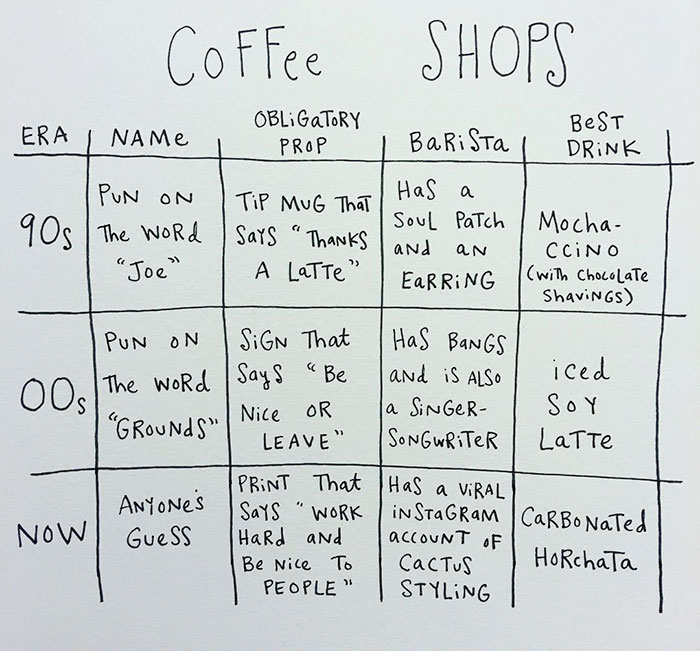 COFFee SHOPS
ERA NAMe OBLiGaTORY PROP BaRiSTa BeST DRiNK
90s
PUN ON
The WoRd
"Joe"
TiP MUG ThaT
SaYS "ThaNKS
A LaTTe"
HaS a
SoUL PaTCH
aNd aN
EaRRiNG
MoCha-
CCiNO
(WiTh ChoCoLaTe
ShaviNGS)
00s
PUN ON
The WoRd
"GRoUNdS"
SiGN ThaT
SaYS "Be
Nice OR
LEAVE"
HaS BaNGS
aNd iS ALSO
a SiNGeR-
SoNGwRiTeR
iced
SoY
LaTTe
NOW
ANYONe'S
GueSS
PRiNT ThaT
SaYS "WORK
HaRd aNd
Be Nice To
PEOPLE"
HaS a ViRAL
iNSTaGRaM
accoUNT oF
CaCTuS
STYLiNG
CaRBoNaTed
HoRchaTa